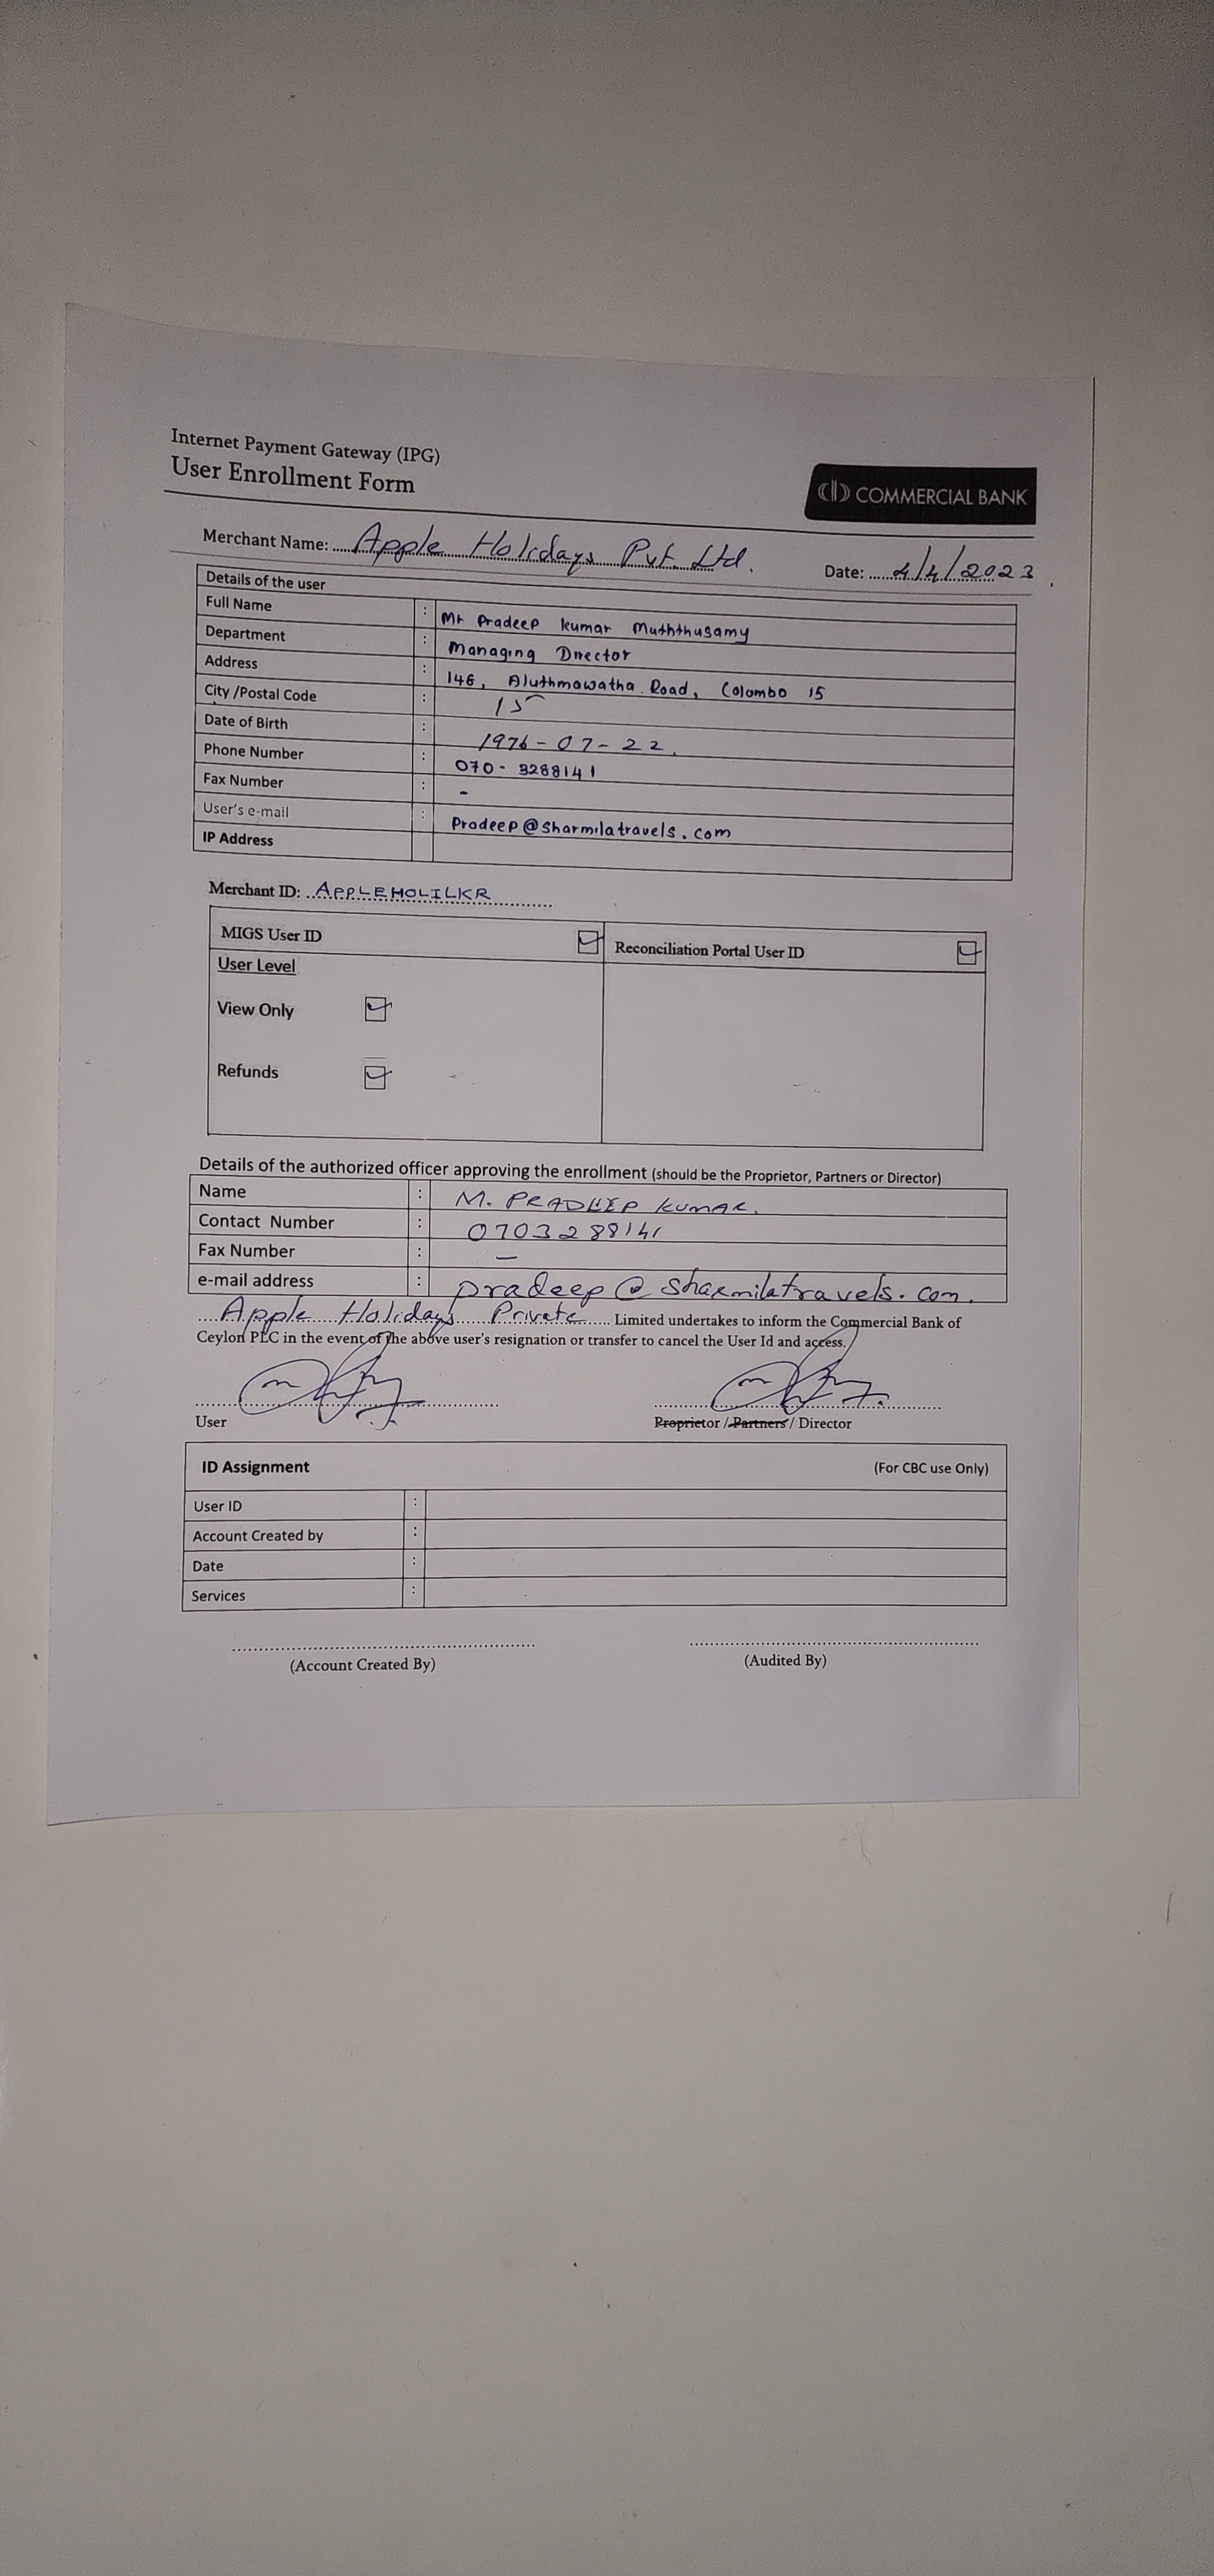 Internet Payment Gateway (IPG)
User Enrollment Form
COMMERCIAL BANK
Merchant Name: Apple Holidays Pvt. Ltd.
Date: 4/4/2023
Details of the user
Full Name : Mr Pradeep kumar Muththusamy
Department : Managing Director
Address : 146, Aluthmawatha Road, Colombo 15
City /Postal Code : 15
Date of Birth : 1976-07-22.
Phone Number : 070-3288141
Fax Number : -
User's e-mail : Pradeep@sharmilatravels.com
IP Address
Merchant ID: APPLEHOLILKR
MIGS User ID
Reconciliation Portal User ID
User Level
View Only
Refunds
Details of the authorized officer approving the enrollment (should be the Proprietor, Partners or Director)
Name : M. PRADEEP KUMAR.
Contact Number : 0703288141
Fax Number : -
e-mail address : pradeep@sharmilatravels.com.
Apple Holidays Private Limited undertakes to inform the Commercial Bank of
Ceylon PLC in the event of the above user's resignation or transfer to cancel the User Id and access.
User
Proprietor / Partners / Director
ID Assignment (For CBC use Only)
User ID :
Account Created by :
Date :
Services :
(Account Created By)
(Audited By)